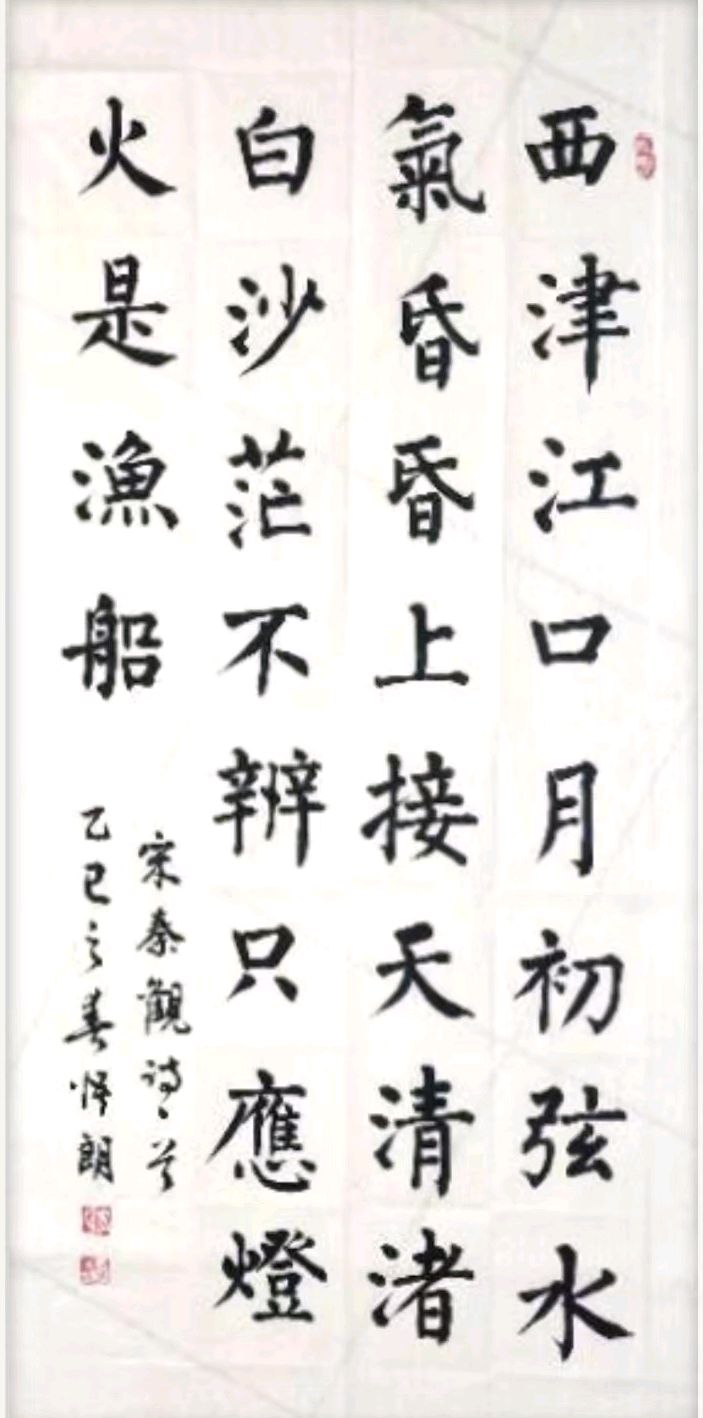 西津江口月初弦水
氣昏昏上接天清渚
白沙茫不辨只應燈
火是漁船
宋秦觀詩一首
乙巳之春懌朗